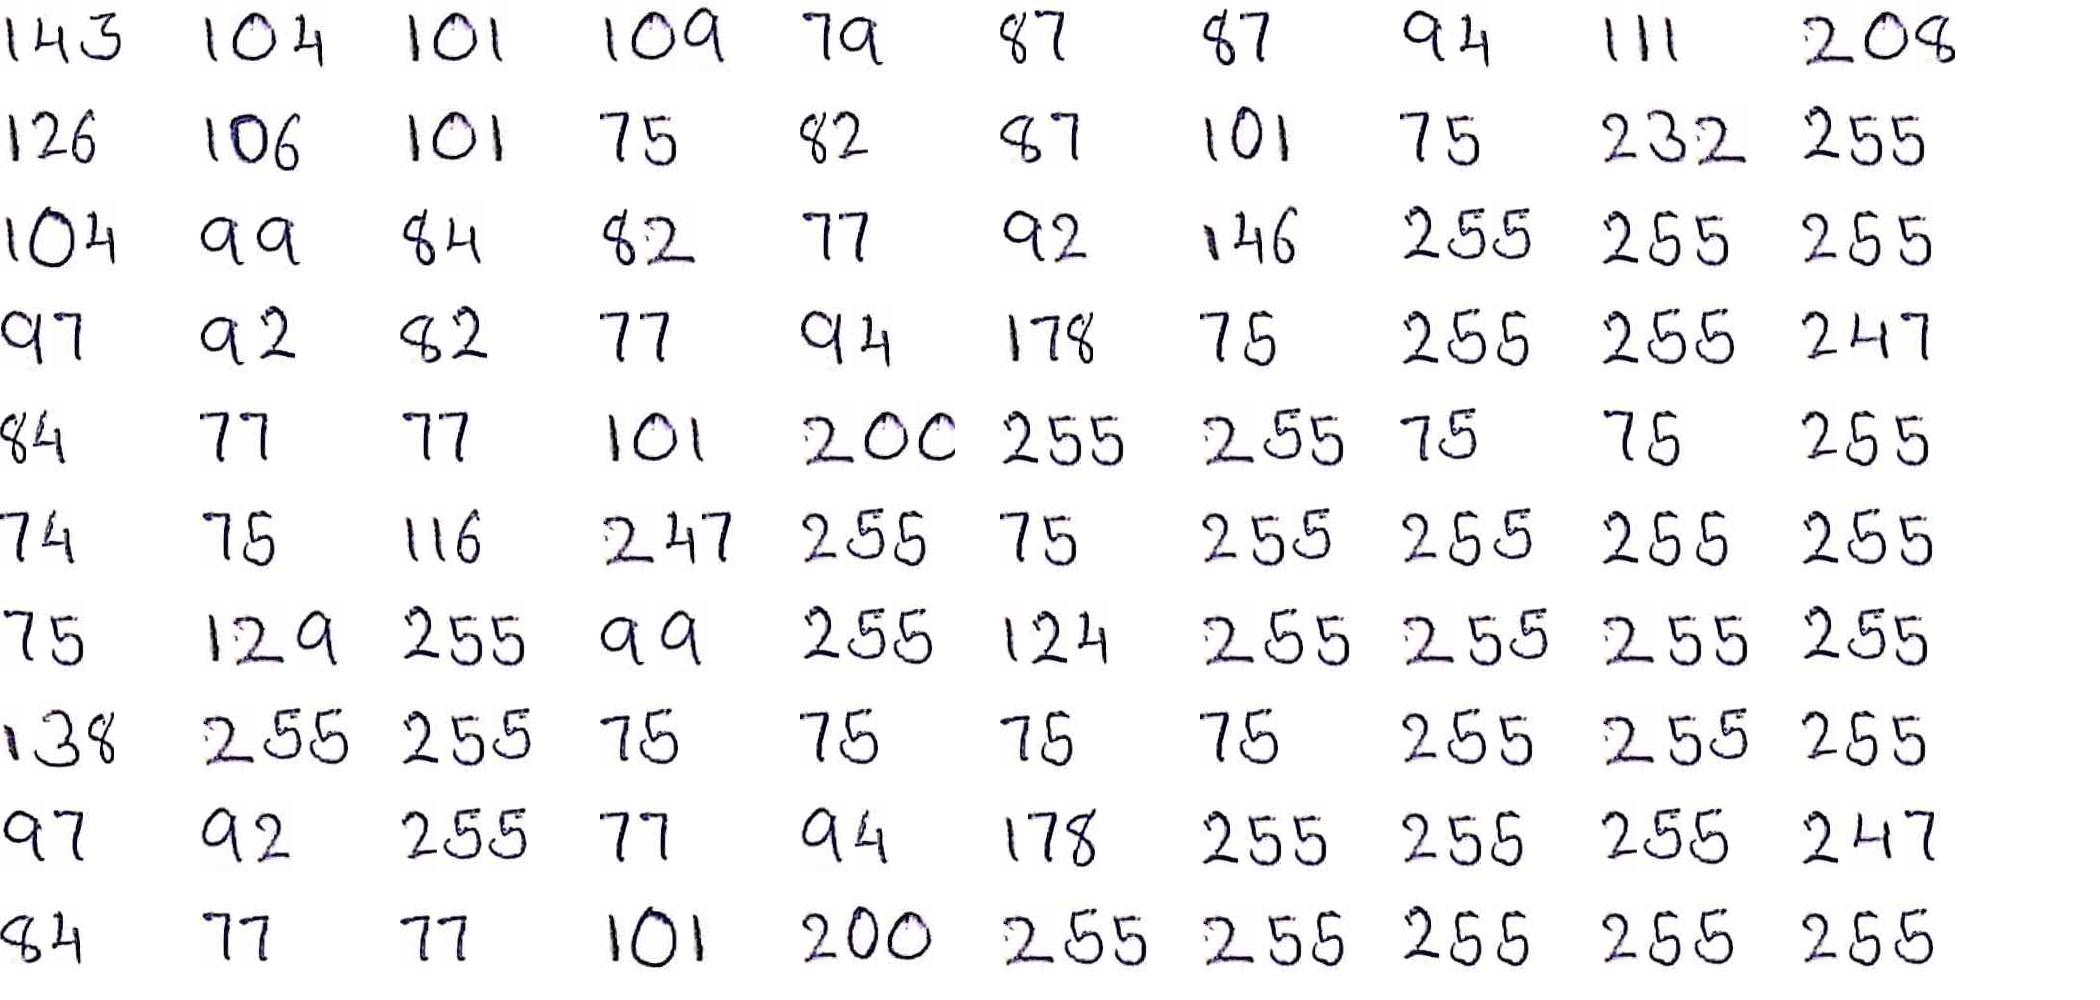 143 104 101 109 79 87 87 94 111 208
126 106 101 75 82 87 101 75 232 255
104 99 84 82 77 92 146 255 255 255
97 92 82 77 94 178 75 255 255 247
84 77 77 101 200 255 255 75 75 255
74 75 116 247 255 75 255 255 255 255
75 129 255 99 255 124 255 255 255 255
138 255 255 75 75 75 75 255 255 255
97 92 255 77 94 178 255 255 255 247
84 77 77 101 200 255 255 255 255 255